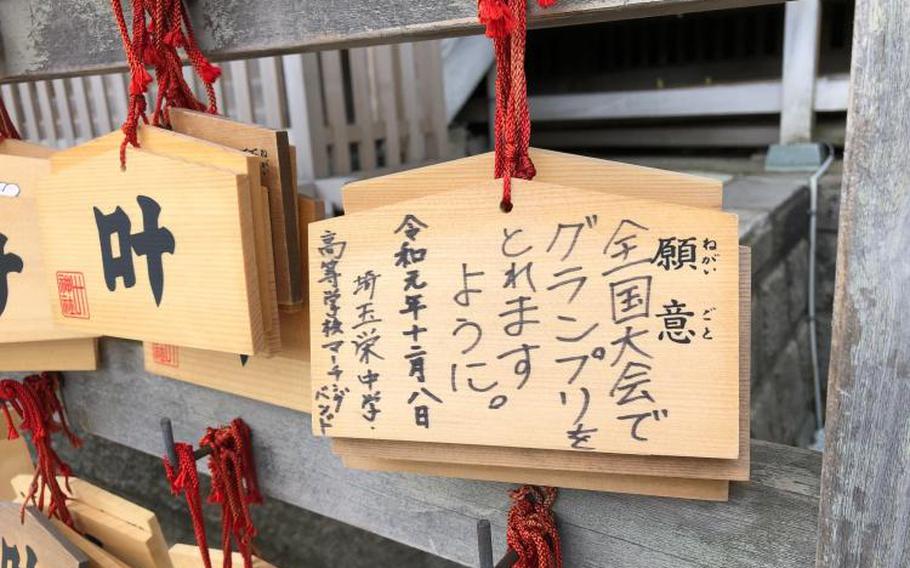 願意
ねがい
ごと
全国大会で
グランプリを
とれます
ように。
令和元年十二月八日
埼玉栄中学・
高等学校マーチング
バンド
叶
叶
神社